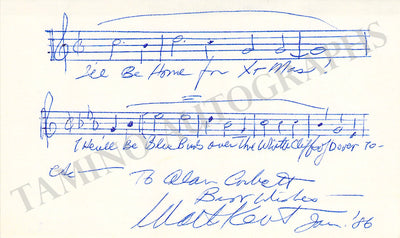 I'll Be Home for Xr Mas!
There'll Be Blue Birds over the White Cliffs of Dover To-
To Alan Corbett
Best Wishes —
Walt Kent Jan. '86
TAMINO AUTOGRAPHS